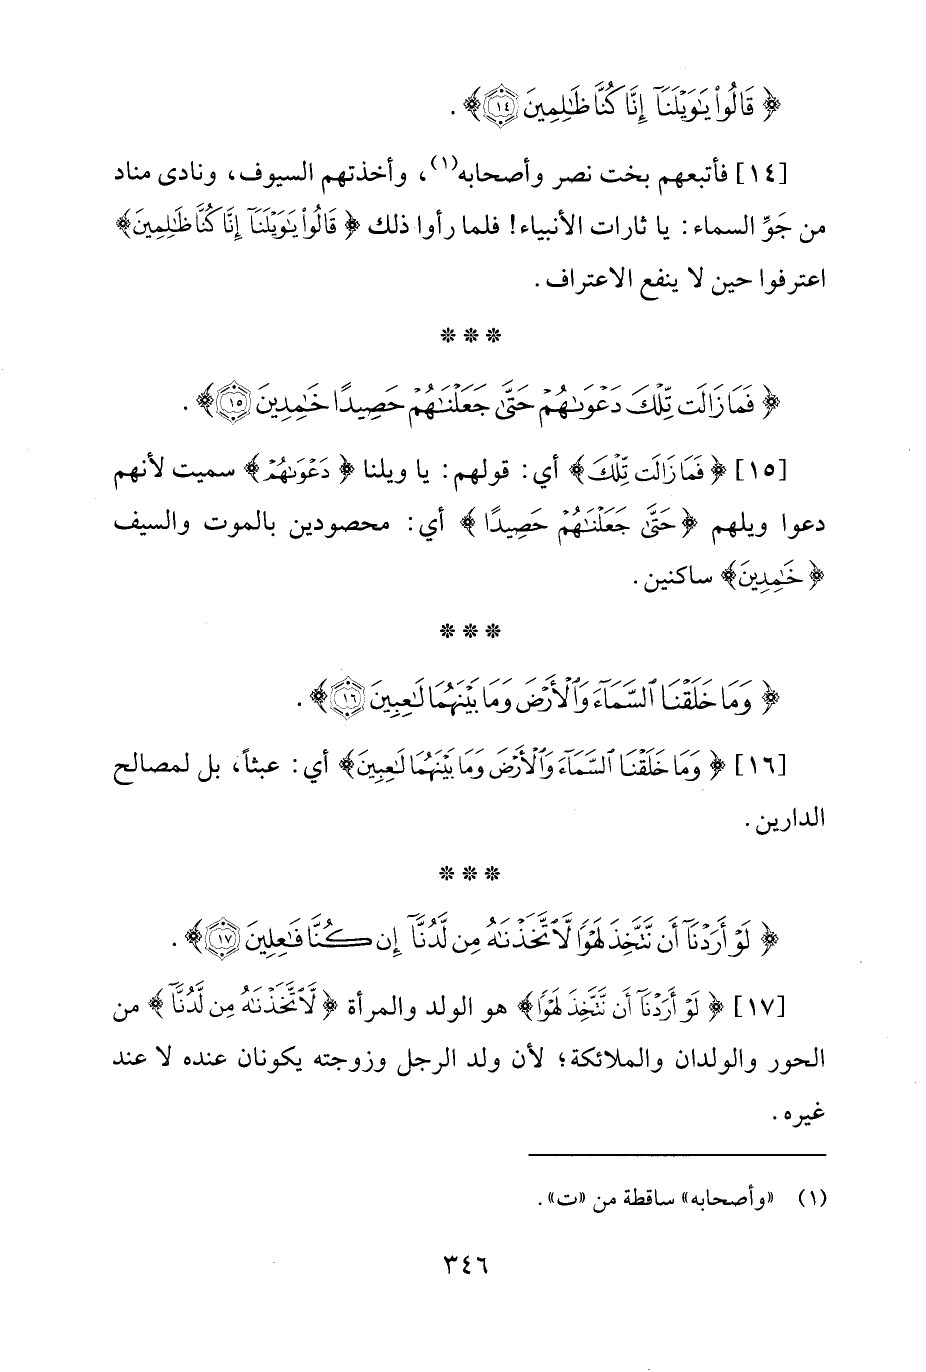 ﴿قَالُواْ يَٰوَيْلَنَآ إِنَّا كُنَّا ظَٰلِمِينَ ١٤﴾ .
[١٤] فأتبعهم بخت نصر وأصحابه(١)، وأخذتهم السيوف، ونادى مناد
من جَوِّ السماء: يا ثارات الأنبياء! فلما رأوا ذلك ﴿قَالُواْ يَٰوَيْلَنَآ إِنَّا كُنَّا ظَٰلِمِينَ﴾
اعترفوا حين لا ينفع الاعتراف.
* * *
﴿فَمَا زَالَت تِّلْكَ دَعْوَىٰهُمْ حَتَّىٰ جَعَلْنَٰهُمْ حَصِيدًا خَٰمِدِينَ ١٥﴾ .
[١٥] ﴿فَمَا زَالَت تِّلْكَ﴾ أي: قولهم: يا ويلنا ﴿دَعْوَىٰهُمْ﴾ سميت لأنهم
دعوا ويلهم ﴿حَتَّىٰ جَعَلْنَٰهُمْ حَصِيدًا﴾ أي: محصودين بالموت والسيف
﴿خَٰمِدِينَ﴾ ساكنين.
* * *
﴿وَمَا خَلَقْنَا ٱلسَّمَآءَ وَٱلْأَرْضَ وَمَا بَيْنَهُمَا لَٰعِبِينَ ١٦﴾ .
[١٦] ﴿وَمَا خَلَقْنَا ٱلسَّمَآءَ وَٱلْأَرْضَ وَمَا بَيْنَهُمَا لَٰعِبِينَ﴾ أي: عبثاً، بل لمصالح
الدارين.
* * *
﴿لَوْ أَرَدْنَآ أَن نَّتَّخِذَ لَهْوًا لَّٱتَّخَذْنَٰهُ مِن لَّدُنَّآ إِن كُنَّا فَٰعِلِينَ ١٧﴾ .
[١٧] ﴿لَوْ أَرَدْنَآ أَن نَّتَّخِذَ لَهْوًا﴾ هو الولد والمرأة ﴿لَّٱتَّخَذْنَٰهُ مِن لَّدُنَّآ﴾ من
الحور والولدان والملائكة؛ لأن ولد الرجل وزوجته يكونان عنده لا عند
غيره.
(١) «وأصحابه» ساقطة من «ت».
٣٤٦